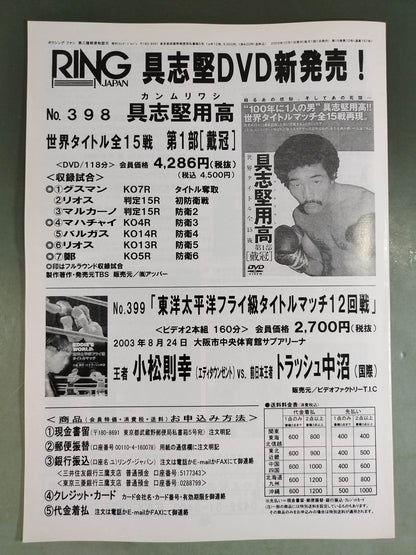 RING JAPAN
具志堅DVD新発売！
No.398
カンムリワシ
具志堅用高
世界タイトル全15戦 第1部[戴冠]
<DVD/118分> 会員価格 4,286円(税抜)
(税込 4,500円)
<収録試合>
◎①グスマン KO7R タイトル奪取
②リオス 判定15R 初防衛戦
③マルカーノ 判定15R 防衛2
◎④マハチャイ KO4R 防衛3
⑤バルガス KO14R 防衛4
◎⑥リオス KO13R 防衛5
◎⑦鄭 KO5R 防衛6
◎印はフルラウンド収録試合
製作著作・発売元TBS 販売元/㈱アッパー
"100年に1人の男"具志堅用高!!
世界タイトルマッチ全15戦再現。
具志堅用高
世界タイトル全15戦
第1部
[戴冠]
DVD
No.399「東洋太平洋フライ級タイトルマッチ12回戦」
<ビデオ2本組 160分> 会員価格 2,700円(税抜)
2003年8月24日 大阪市中央体育館サブアリーナ
王者 小松則幸(エディタウンゼント) vs. 前日本王者 トラッシュ中沼(国際)
販売元/ビデオファクトリーT.I.C
EDDIE'S WORLD
<商品(会員特価・消費税・送料)お申込み方法>
①現金書留(〒180-8691 東京都武蔵野郵便局私書箱5号宛)注文明記
②郵便振替(口座番号00110-4-160078)用紙の通信欄に注文明記
③銀行振込(口座名・ユ)リング・ジャパン)注文は電話かE-mailかFAXにて御連絡
<三井住友銀行三鷹支店 普通預金 口座番号5177343>
<東京三菱銀行三鷹支店 普通預金 口座番号0288799>
④クレジット・カード カード会社名・カード番号・有効期限を御連絡
⑤代金着払 注文は電話かE-mailかFAXにて御連絡
●送料料金表(消費税込)
代金着払 先払い
1点のみ 2点以上 1点のみ 2点以上
関東 東海 北信越 600 800 400 400
東北 近畿 600 900 400 500
中国 四国 600 1000 400 600
北海道 九州 600 1200 500 1000
沖縄 600 1200 500 1000